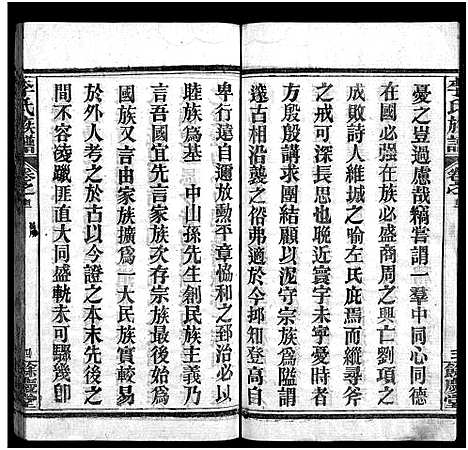 李氏族譜
卷之首
三
餘慶堂
憂之豈過慮哉犒嘗謂一羣中同心同德
在國必強在族必盛商周之興亡劉項之
成敗詩人維城之喻左氏庇焉而縱尋斧
之戒可深長思也晚近寰宇未寧憂時者
方殷殷講求團結顧以泥守宗族為隘謂
遠古相沿襲之俗弗適於今抑知登高自
卑行遠自邇放勳平章恊和之郅治罔不以
睦族為基　中山孫先生創民族主義乃
言吾國宜先言家族次存宗族最後始為
國族又言由家族擴為一大民族實較易
於外人考之於古以今證之本末先後之
間不容淩躐匪直大同盛軌未可驟幾卽
李氏族譜
卷之首
四
餘慶堂